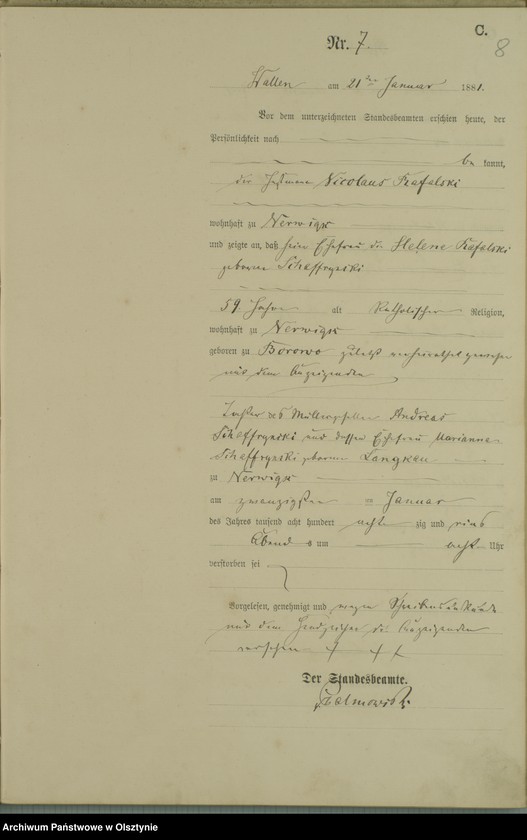 C.
8
Nr. 7.
Wallen am 21ten Januar 1881.
Vor dem unterzeichneten Standesbeamten erschien heute, der
Persönlichkeit nach
be kannt,
der Nicolaus Kafalski
wohnhaft zu Nerwigk
und zeigte an, daß seine Ehefrau die Helene Kafalski
geborene
59 Jahre alt Katholischer Religion,
wohnhaft zu Nerwigk
geboren zu Borowo zuletzt verheirathet gewesen
mit dem Anzeigenden
Tochter des Müllergesellen Andreas
und dessen Ehefrau Marianna
geborene Langkau
zu Nerwigk
am zwanzigsten = Januar
des Jahres tausend acht hundert acht zig und eins
Abend s um acht Uhr
verstorben sei
Vorgelesen, genehmigt und wegen
mit dem Handzeichen des Anzeigenden
versehen + + +
Der Standesbeamte.
Archiwum Państwowe w Olsztynie